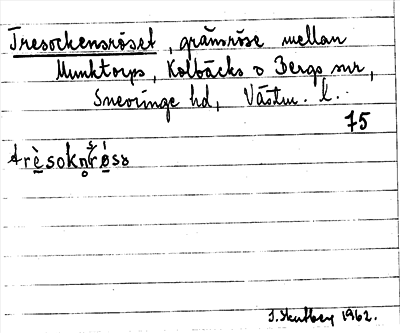 Tresockensröset, gränsröse mellan
Munktorps, Kolbäcks o Bergs snr,
Snevringe hd, Västm. l.
75
1962.